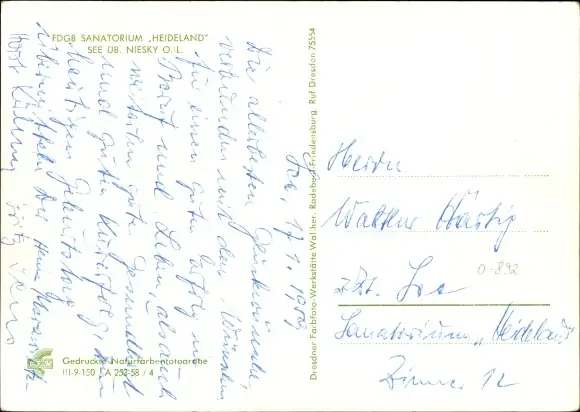 FDGB SANATORIUM „HEIDELAND"
SEE ÜB. NIESKY O. L.
See, 17.1.1959
Die allerbesten Glückwünsche,
verbunden mit den Wünschen
für einen guten Erfolg im
Beruf und Leben, als auch
weiterhin gute Gesundheit
und guten Kurerfolg, zum
heutigen Geburtstag
übermitteln Dir Deine
Horst
Fritz
Dresdner Farbfoto-Werkstätte Walther, Radebeul-Friedensburg Ruf Dresden 75554
Herrn
Walter Härtig
z. Zt. See
0-892
Sanatorium „Heideland"
Zimmer 12
Gedruckte Naturfarbenfotoarche
III-9-150 A 252-58 / 4